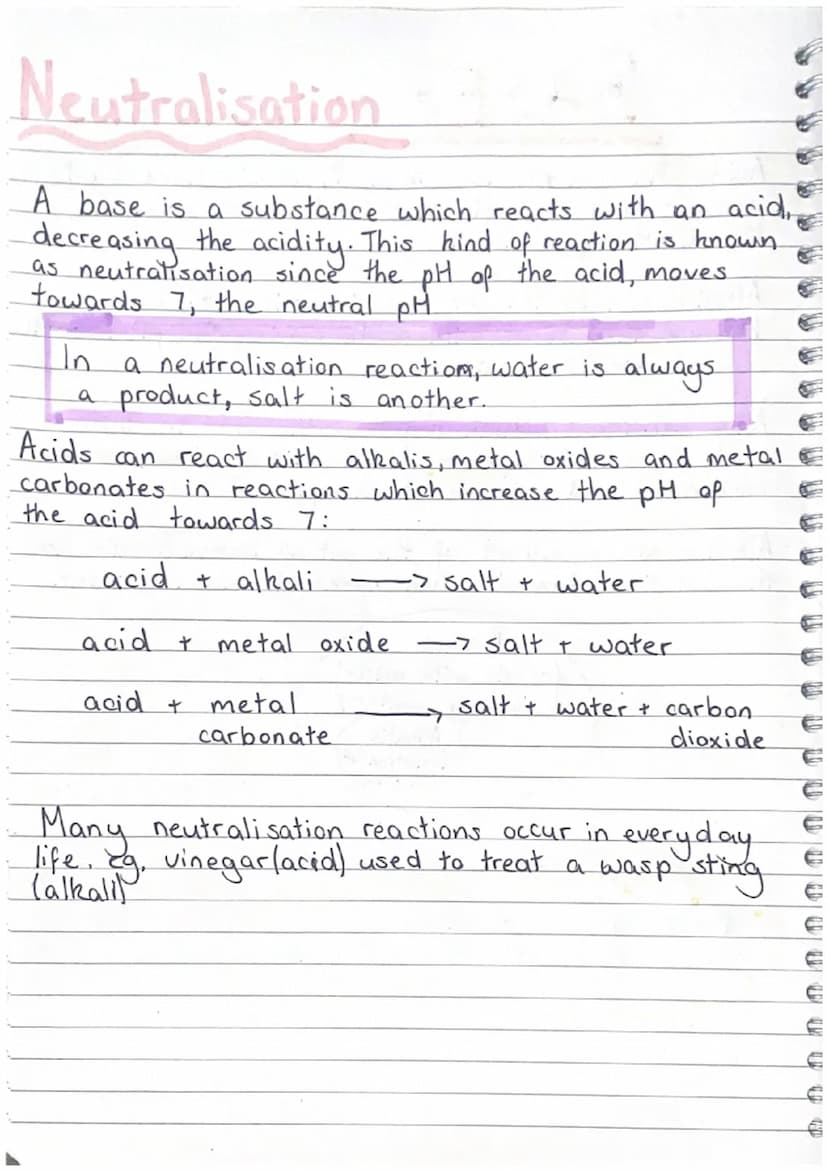 Neutralisation
A base is a substance which reacts with an acid,
decreasing the acidity. This kind of reaction is known
as neutralisation since the pH of the acid, moves
towards 7, the neutral pH
In a neutralisation reaction, water is always
a product, salt is another.
Acids can react with alkalis, metal oxides and metal
carbonates in reactions which increase the pH of
the acid towards 7:
acid + alkali → salt + water
acid + metal oxide → salt + water
acid + metal → salt + water + carbon
carbonate dioxide
Many neutralisation reactions occur in everyday
life, eg, vinegar(acid) used to treat a wasp sting
(alkali)